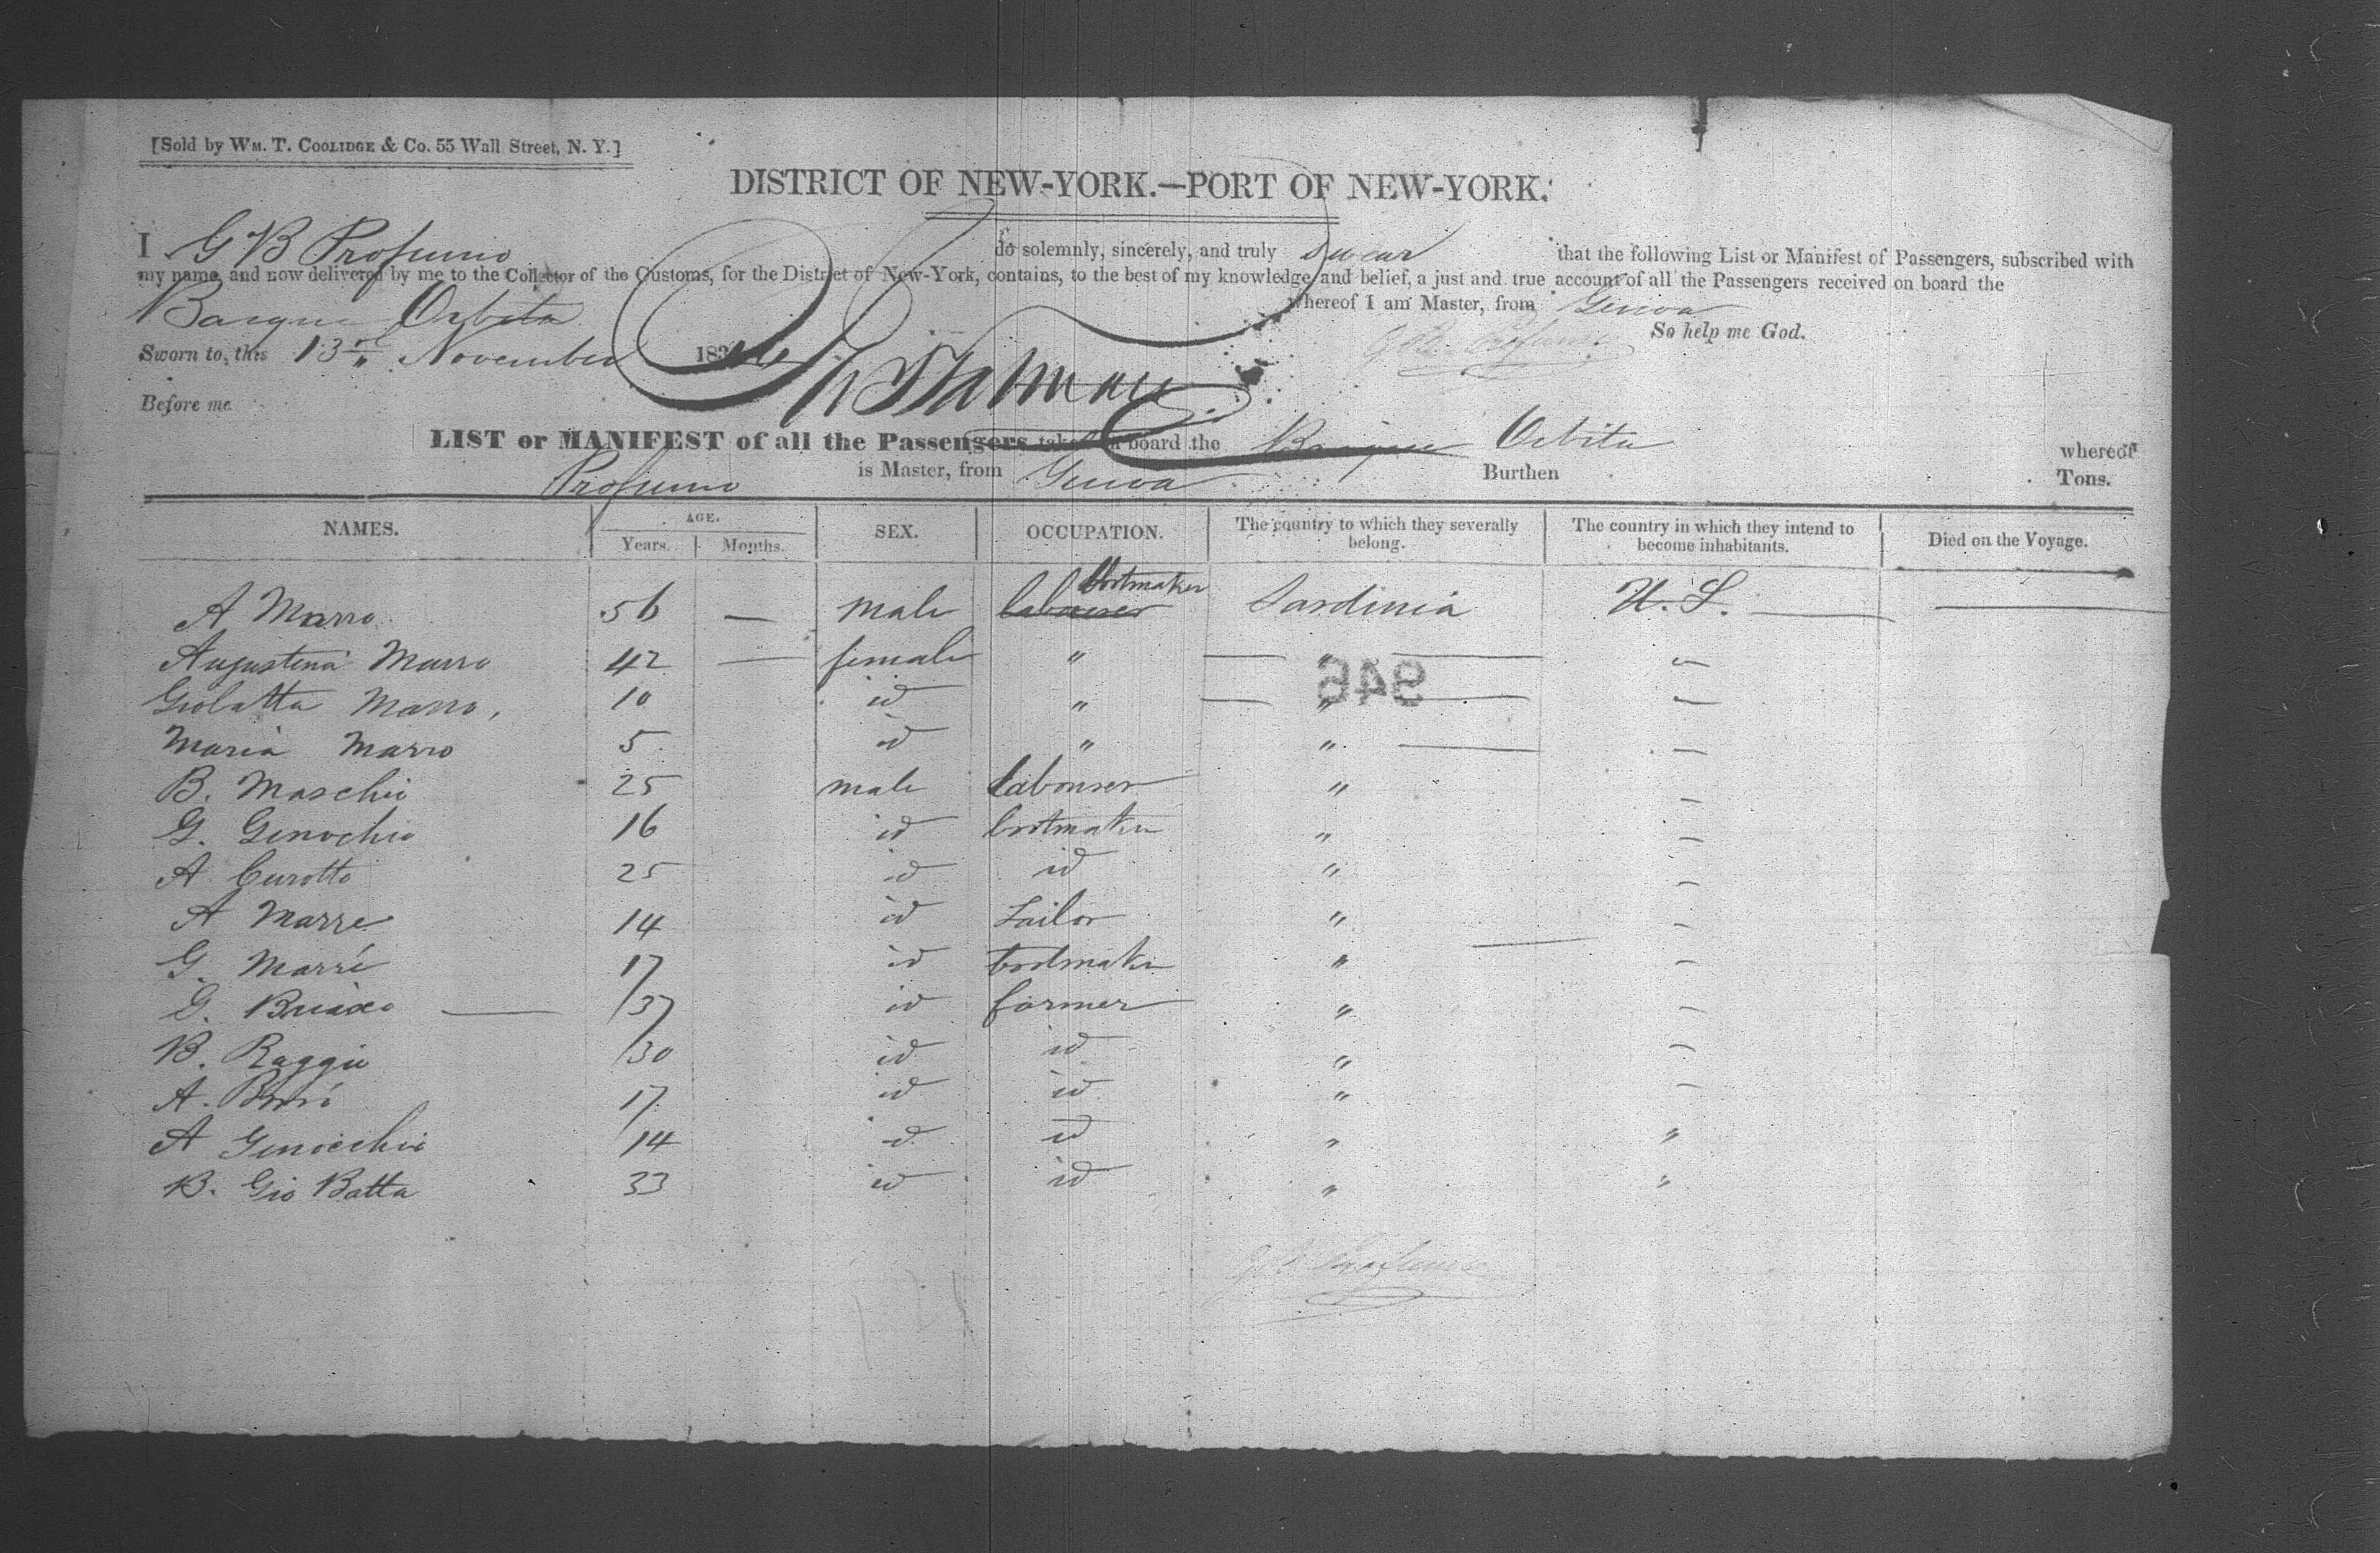 [Sold by WM. T. COOLIDGE & Co. 55 Wall Street, N. Y.]
DISTRICT OF NEW-YORK.—PORT OF NEW-YORK.
I G B Profumo do solemnly, sincerely, and truly swear that the following List or Manifest of Passengers, subscribed with
my name, and now delivered by me to the Collector of the Customs, for the District of New-York, contains, to the best of my knowledge and belief, a just and true account of all the Passengers received on board the
Barque Orbita whereof I am Master, from Genoa
Sworn to, this 13 November 18 So help me God.
Before me
LIST or MANIFEST of all the Passengers taken on board the Barque Orbita whereof
Profumo is Master, from Genoa Burthen Tons.
NAMES. AGE. Years. Months. SEX. OCCUPATION. The country to which they severally belong. The country in which they intend to become inhabitants. Died on the Voyage.
A Marro 56 — male labourer bootmaker Sardinia U. S. —
Augustina Marro 42 — female " — " — –
Marro, 10 id " — " — –
Maria Marro 5 id " " — –
B. Maschio 25 male labourer " –
G. Genochio 16 id bootmaker " –
A Curotto 25 id id " –
A Marre 14 id Tailor " –
G. Marré 17 id bootmaker " –
G. — 37 id farmer " –
B. Raggio 30 id id " –
A. 17 id id " –
A Genocchio 14 id id " "
B. Gio Batta 33 id id " "
946
G B Profumo